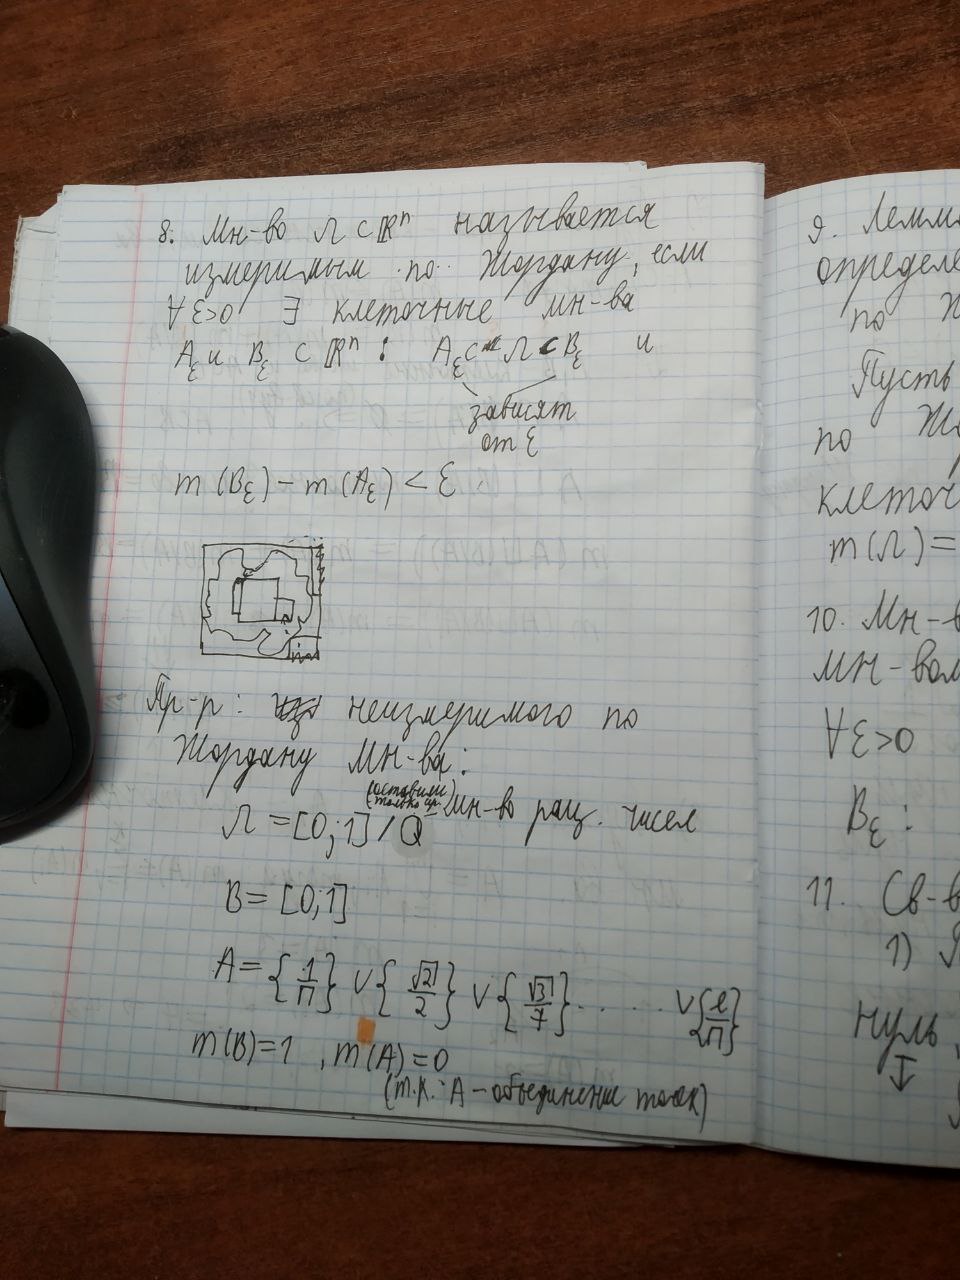 8. Мн-во Л ⊂ ℝⁿ называется
измеримым по Жордану, если
∀ε>0 ∃ клеточные мн-ва
A_ε и B_ε ⊂ ℝⁿ : A_ε ⊂ Л ⊂ B_ε и
зависят
от ε
m(B_ε) - m(A_ε) < ε
Пр-р: неизмеримого по
Жордану мн-ва:
(оставили
только ир.)
Л = [0;1] / Q мн-во рац. чисел
B = [0;1]
A = {1/π} ∨ {√2/2} ∨ {√3/7} ..... ∨ {e/π}
m(B)=1, m(A)=0
(т.к. A - объединение точек)
9. Лемм
определе
по Ж
Пусть
по Жо
клеточ
m(Л) =
10. Мн-в
мн-вом
∀ε>0
B_ε :
11. Св-в
1)
нуль
↓